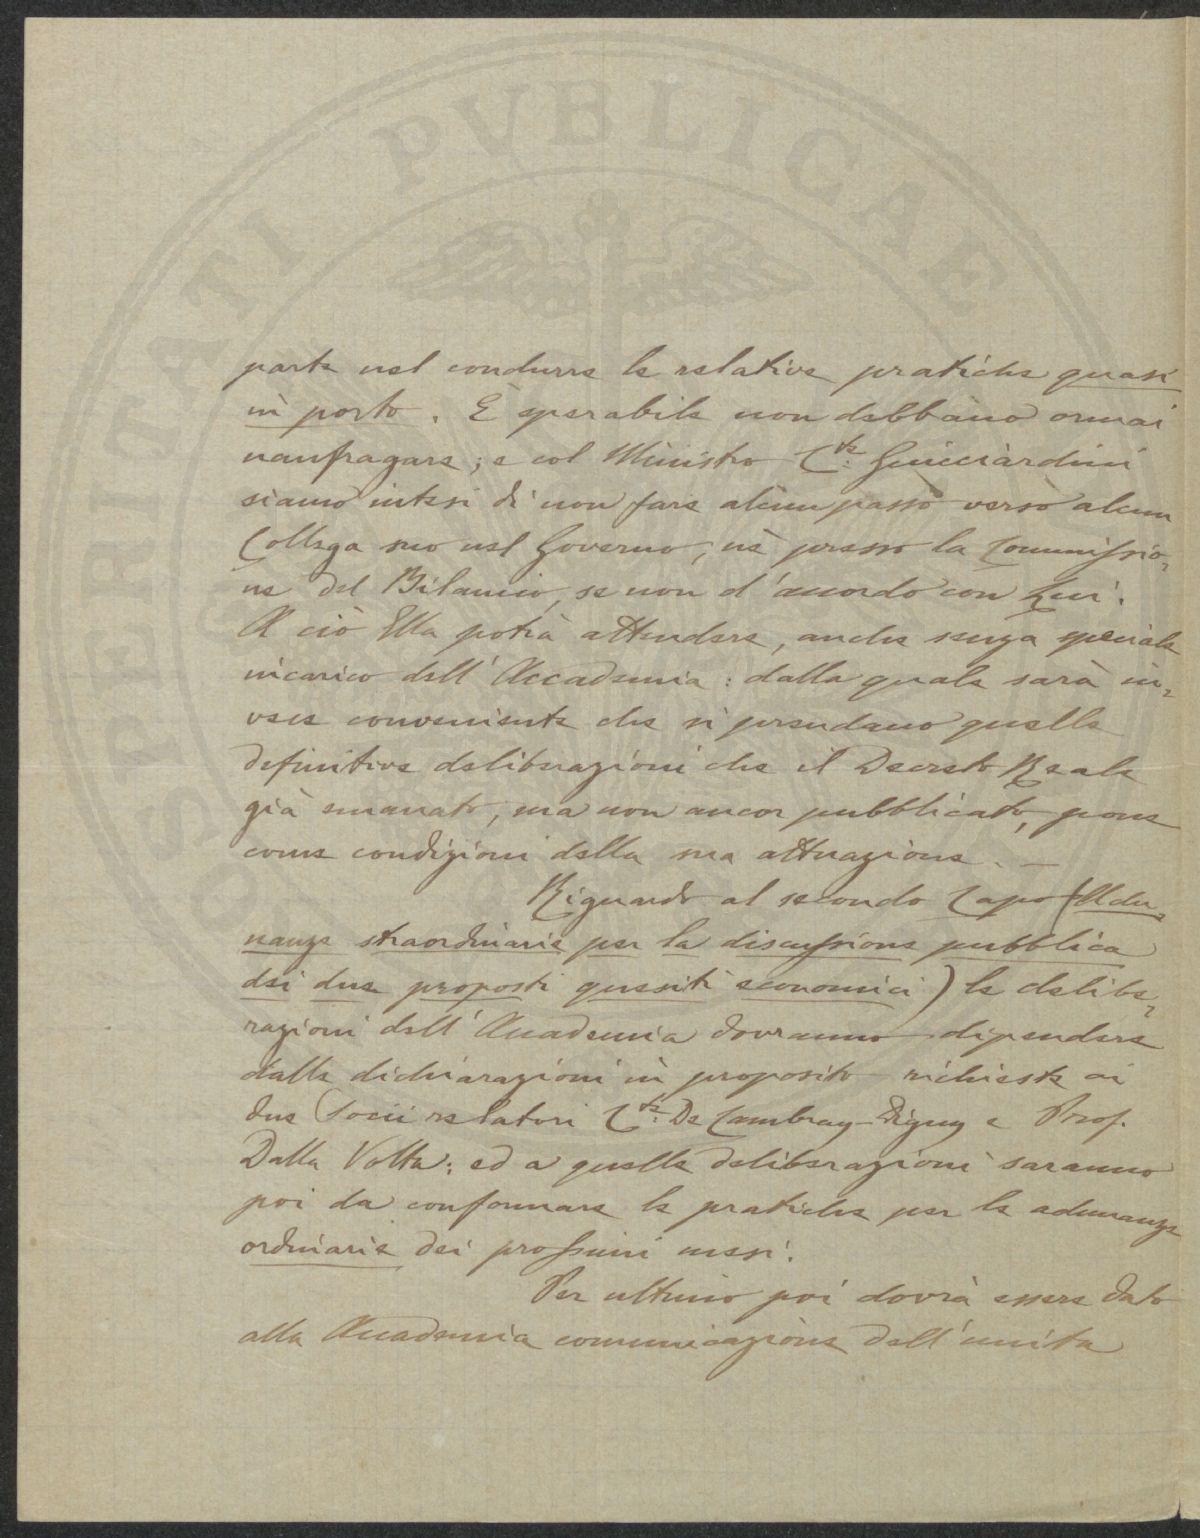 parte nel condurre le relative pratiche quasi
in porto. È sperabile non debbano ormai
naufragare; e col Ministro C.te Guicciardini
siamo intesi di non fare alcun passo verso alcun
Collega suo nel Governo, nè presso la Commissio=
ne del Bilancio, se non d'accordo con Lui.
A ciò Ella potrà attendere, anche senza speciale
incarico dell'Accademia: dalla quale sarà in=
vece conveniente che si prendano quelle
definitive deliberazioni che il Decreto Reale
già emanato, ma non ancor pubblicato, pone
come condizioni della sua attuazione. —
Riguardo al secondo Capo (Adu=
nanze straordinarie per la discussione pubblica
dei due proposti quesiti economici) le delibe=
razioni dell'Accademia dovranno dipendere
dalle dichiarazioni in proposito richieste ai
due Socii relatori C.te De Cambray-Digny e Prof.
Dalla Volta; ed a quelle deliberazioni saranno
poi da conformare le pratiche per le adunanze
ordinarie dei prossimi mesi.
Per ultimo poi dovrà essere dato
alla Accademia comunicazione dell'unita